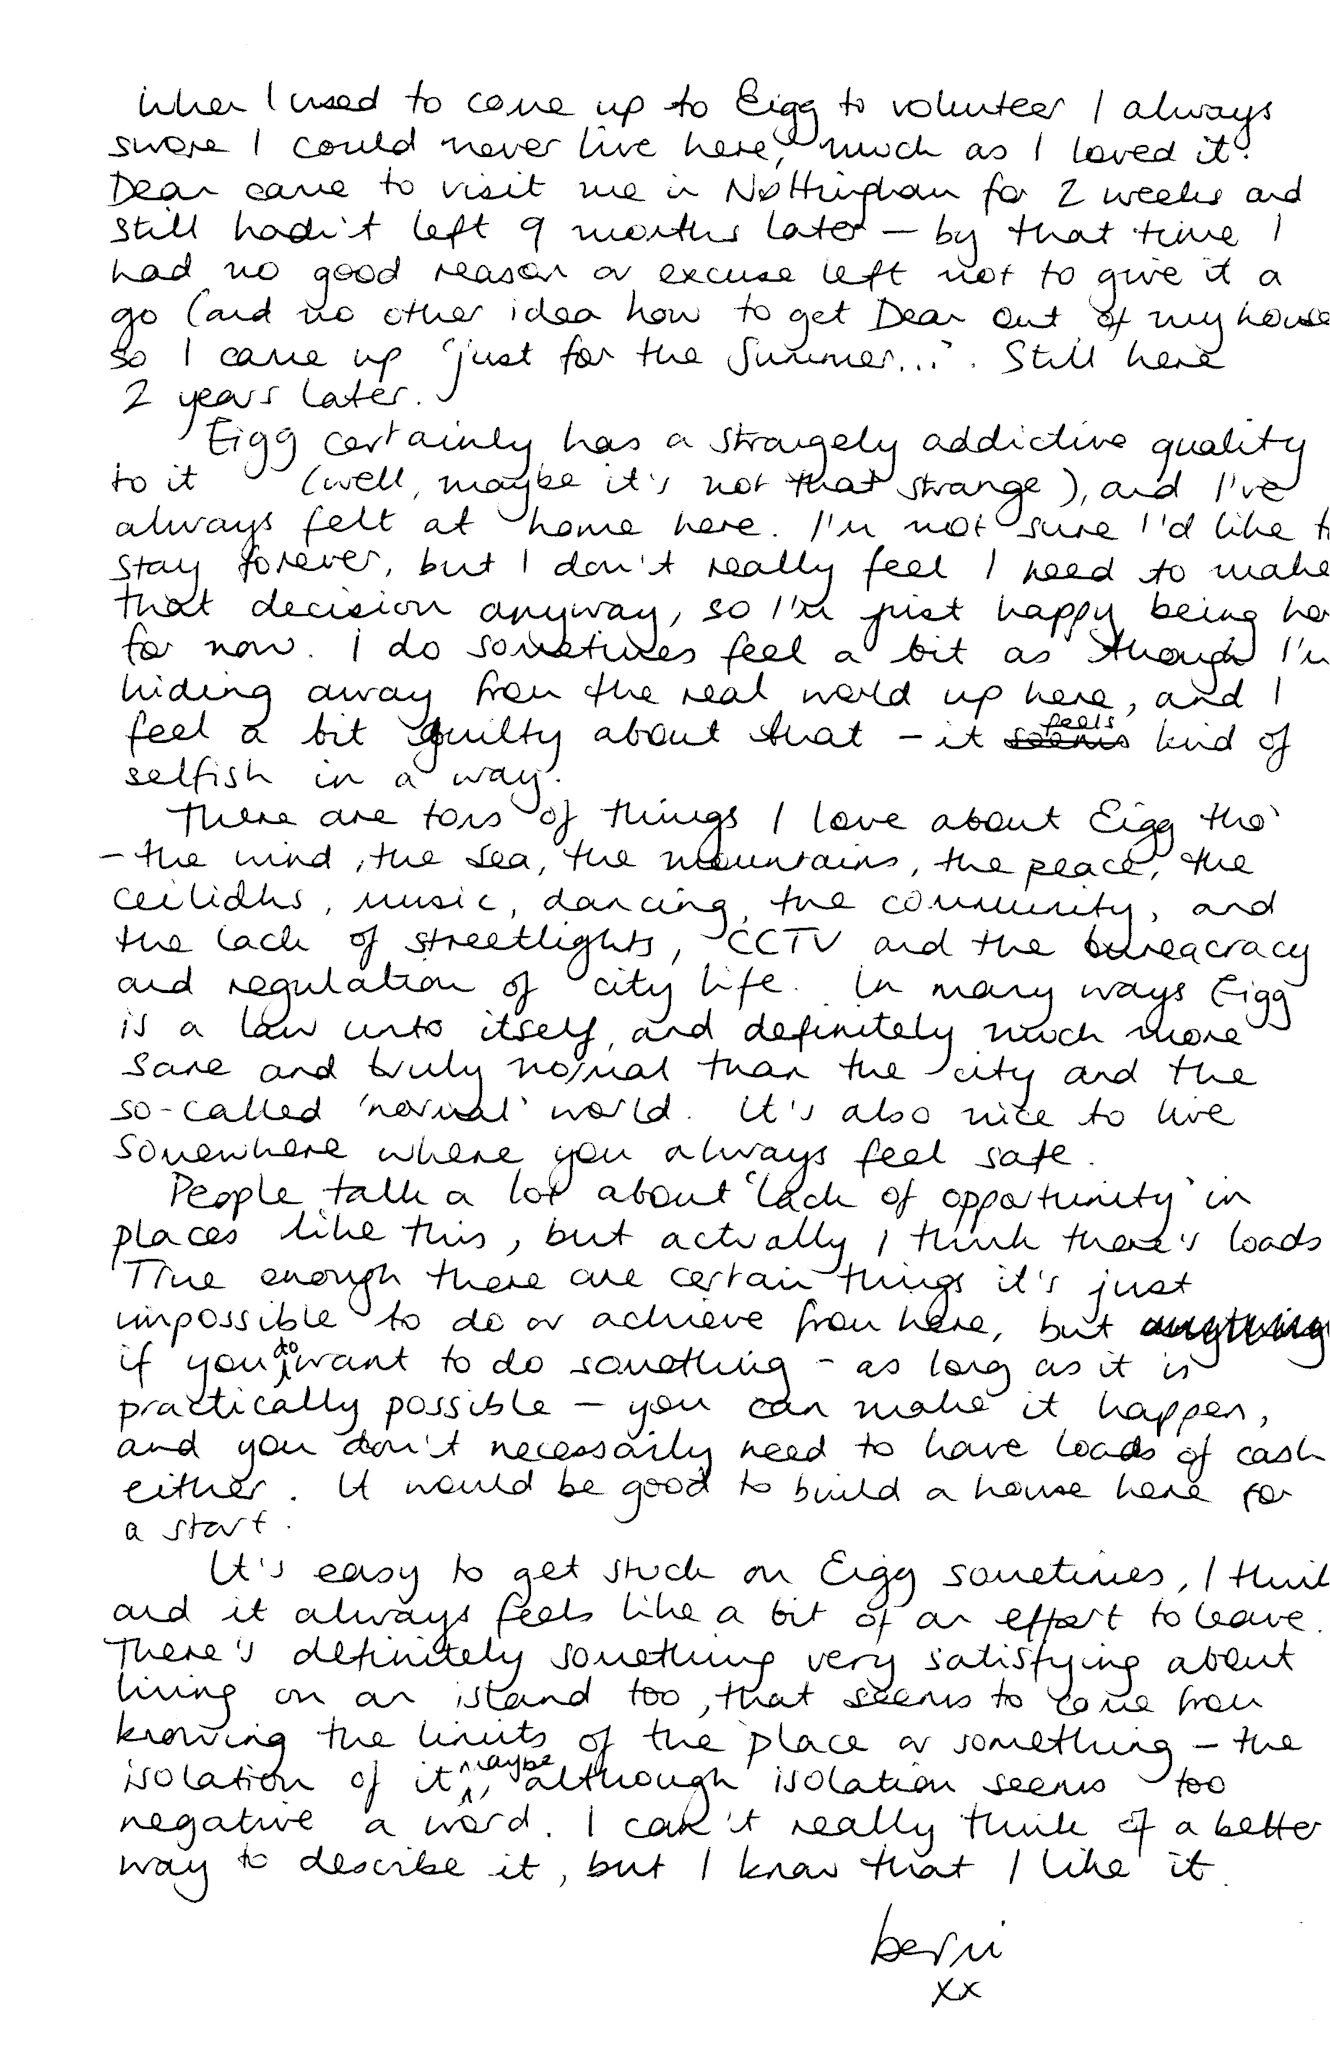 When I used to come up to Eigg to volunteer I always
swore I could never live here, much as I loved it.
Dean came to visit me in Nottingham for 2 weeks and
still hadn't left 9 months later – by that time I
had no good reason or excuse left not to give it a
go (and no other idea how to get Dean out of my house
so I came up 'just for the Summer...'. Still here
2 years later.
Eigg certainly has a strangely addictive quality
to it (well, maybe it's not that strange), and I've
always felt at home here. I'm not sure I'd like t
stay forever, but I don't really feel I need to make
that decision anyway, so I'm just happy being he
for now. I do sometimes feel a bit as though I'm
hiding away from the real world up here, and I
feel a bit guilty about that – it seems feels kind of
selfish in a way.
There are tons of things I love about Eigg tho'
– the wind, the sea, the mountains, the peace, the
ceilidhs, music, dancing, the community, and
the lack of streetlights, CCTV and the bureacracy
and regulation of city life. In many ways Eigg
is a law unto itself, and definitely much more
sane and truly normal than the city and the
so-called 'normal' world. It's also nice to live
somewhere where you always feel safe.
People talk a lot about 'lack of opportunity' in
places like this, but actually I think there's loads
True enough there are certain things it's just
impossible to do or achieve from here, but anything
if you do want to do something – as long as it is
practically possible – you can make it happen,
and you don't necessarily need to have loads of cash
either. It would be good to build a house here for
a start.
It's easy to get stuck on Eigg sometimes, I think
and it always feels like a bit of an effort to leave.
There's definitely something very satisfying about
living on an island too, that seems to come from
knowing the limits of the place or something – the
isolation of it maybe, although isolation seems too
negative a word. I can't really think of a better
way to describe it, but I know that I like it.
berni
xx